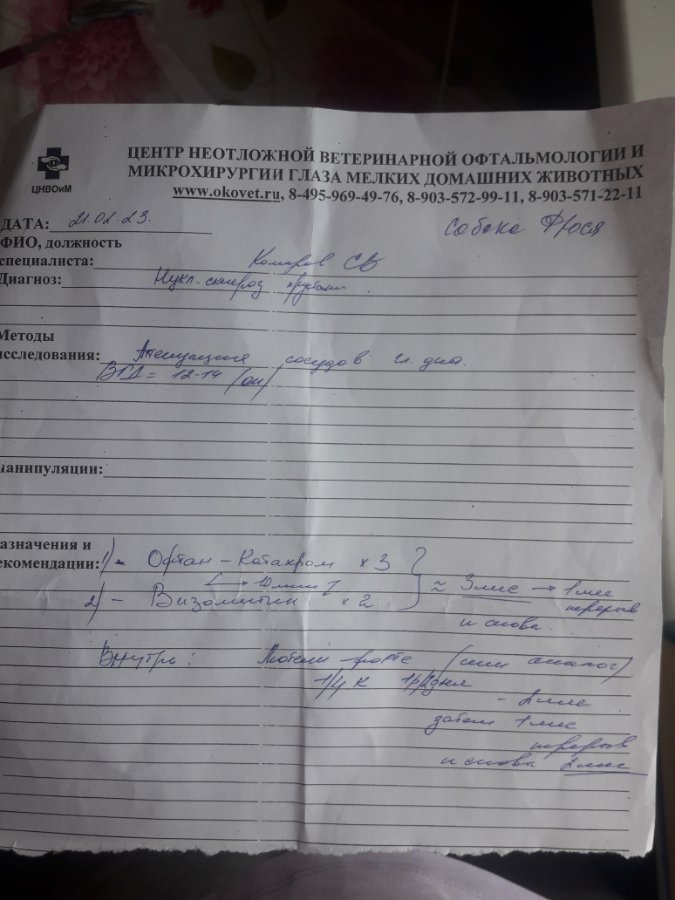 ЦЕНТР НЕОТЛОЖНОЙ ВЕТЕРИНАРНОЙ ОФТАЛЬМОЛОГИИ И
МИКРОХИРУРГИИ ГЛАЗА МЕЛКИХ ДОМАШНИХ ЖИВОТНЫХ
ЦНВОиМ
www.okovet.ru, 8-495-969-49-76, 8-903-572-99-11, 8-903-571-22-11
ДАТА: 21.02.23.
собака Фрося
ФИО, должность
специалиста: Комаров СВ
Диагноз: Нукл. склероз
Методы
исследования: сосудов гл. дна.
ВГД = 12-14 (ou)
манипуляции:
азначения и
екомендации: 1) - Офтан - Катахром х 3
10 мин
≈ 3 мес → 1 мес
2) - Визомитин х 2
перерыв
и снова.
Внутрь: Лютеин форте (или аналог)
1/4 к 1р/2дня
- 2 мес
затем 1 мес
перерыв
и снова 2 мес